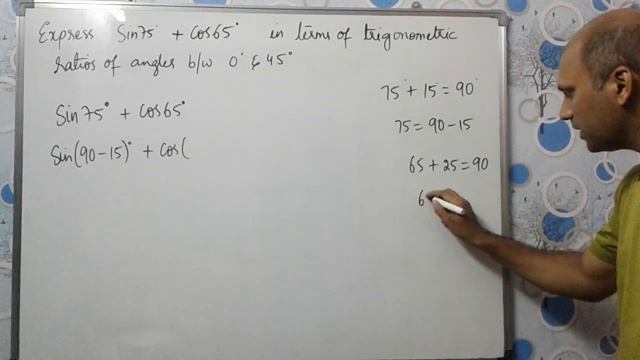 Express Sin75° + Cos65° in terms of trigonometric
ratios of angles b/w 0° & 45°
Sin75° + Cos65°
Sin(90-15)° + Cos(
75° + 15° = 90°
75 = 90-15
65 + 25 = 90
6